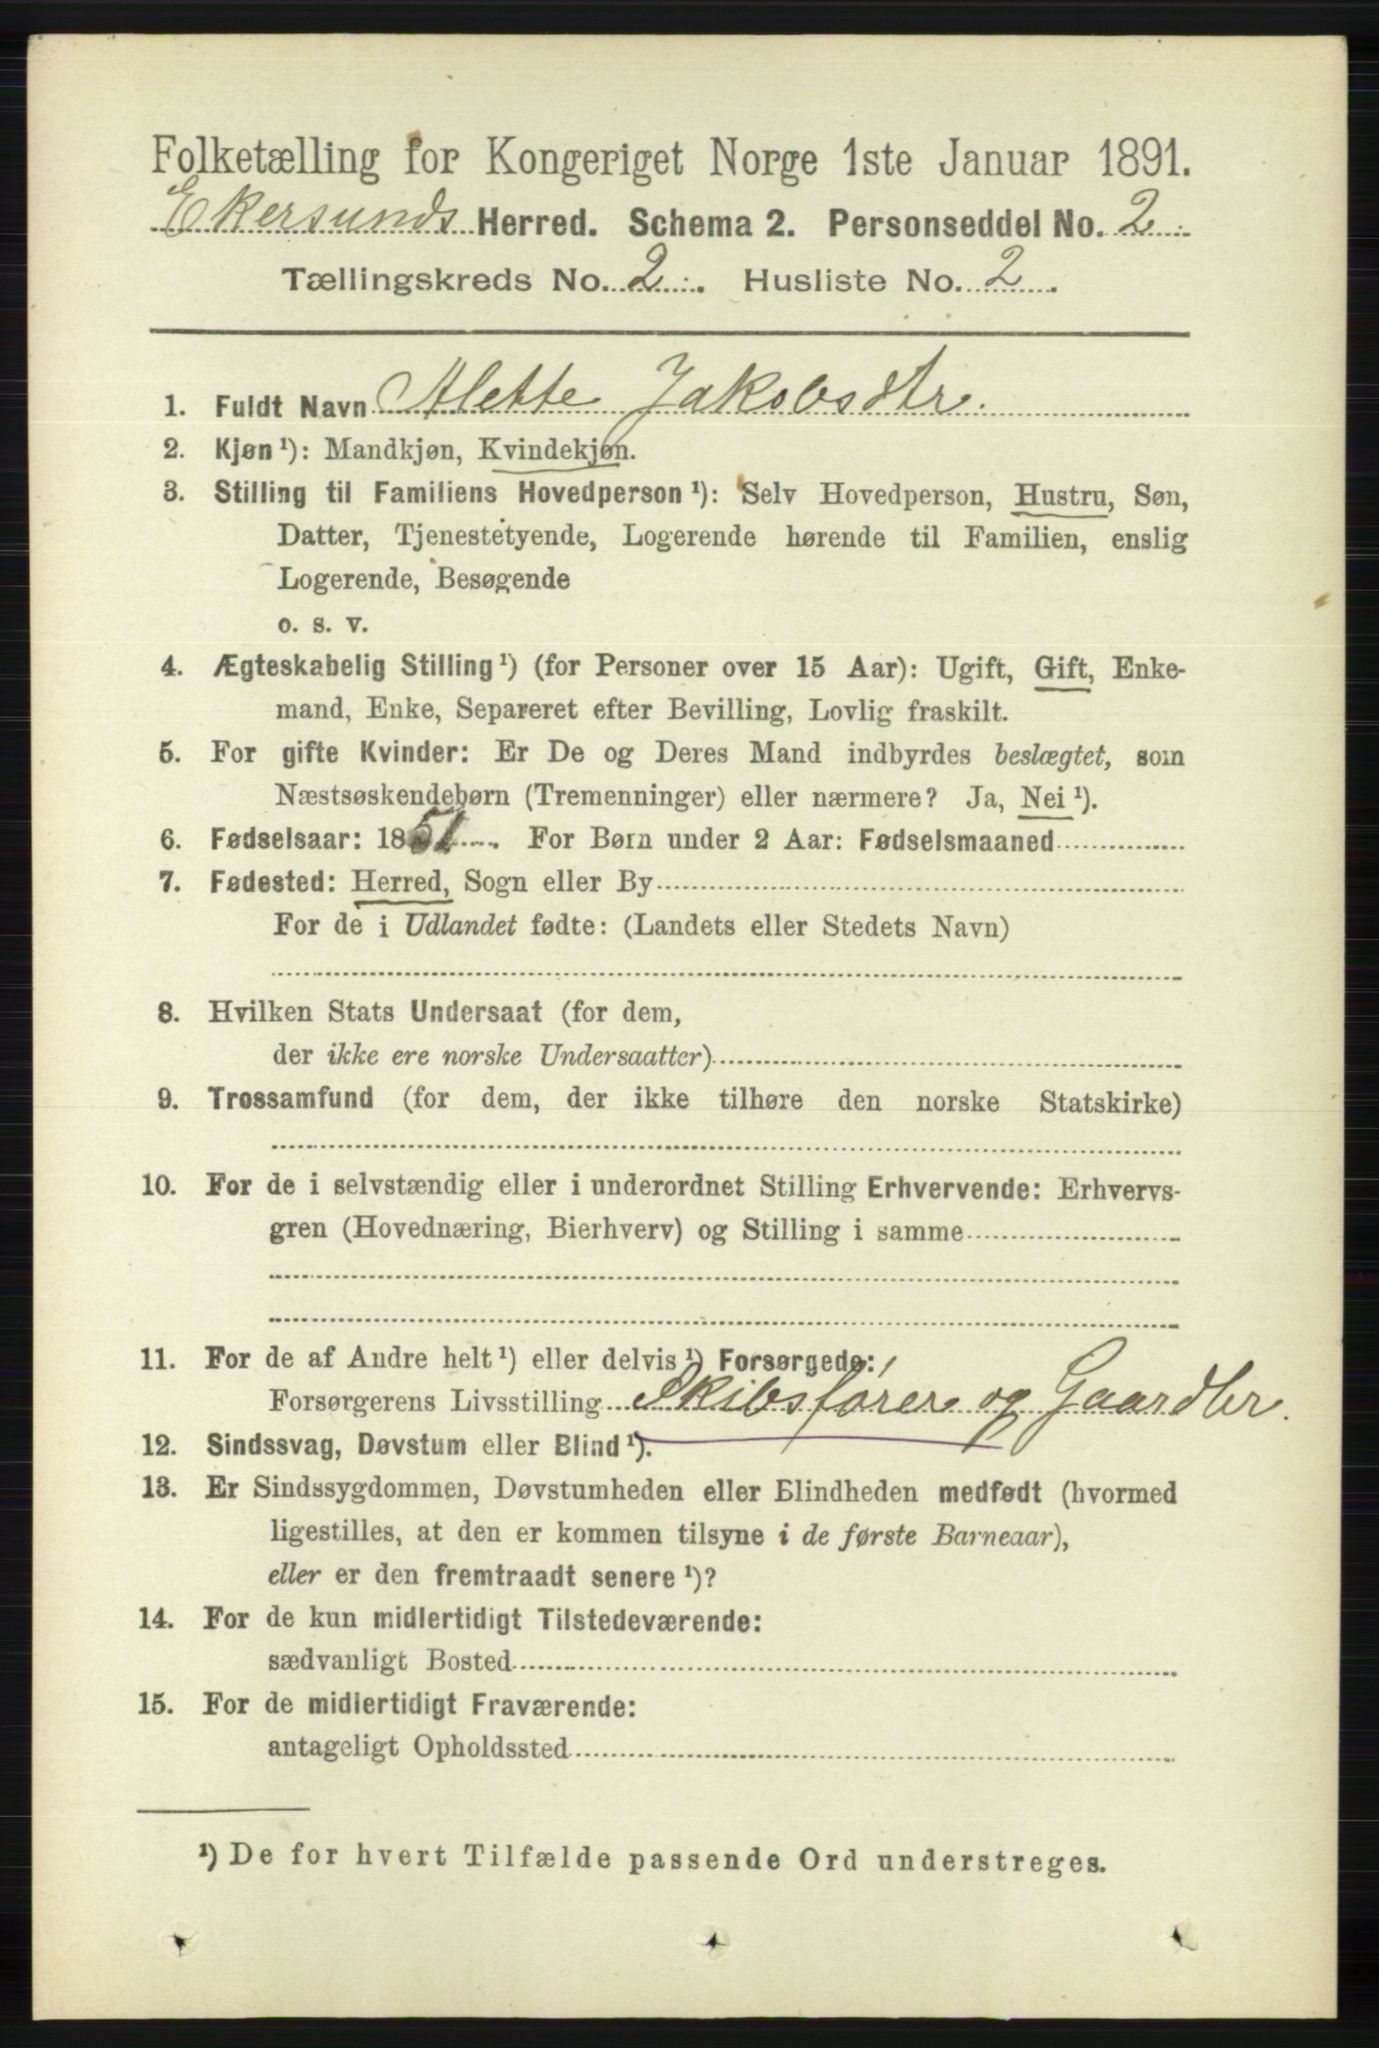 Folketælling for Kongeriget Norge 1ste Januar 1891.
Ekersunds Herred. Schema 2. Personseddel No. 2
Tællingskreds No. 2. Husliste No. 2.
1. Fuldt Navn Alette Jakobsdtr.
2. Kjøn ¹): Mandkjøn, Kvindekjøn.
3. Stilling til Familiens Hovedperson ¹): Selv Hovedperson, Hustru, Søn,
Datter, Tjenestetyende, Logerende hørende til Familien, enslig
Logerende, Besøgende
o. s. v.
4. Ægteskabelig Stilling ¹) (for Personer over 15 Aar): Ugift, Gift, Enke-
mand, Enke, Separeret efter Bevilling, Lovlig fraskilt.
5. For gifte Kvinder: Er De og Deres Mand indbyrdes beslægtet, som
Næstsøskendebørn (Tremenninger) eller nærmere? Ja, Nei ¹).
6. Fødselsaar: 1851. For Børn under 2 Aar: Fødselsmaaned
7. Fødested: Herred, Sogn eller By
For de i Udlandet fødte: (Landets eller Stedets Navn)
8. Hvilken Stats Undersaat (for dem,
der ikke ere norske Undersaatter)
9. Trossamfund (for dem, der ikke tilhøre den norske Statskirke)
10. For de i selvstændig eller i underordnet Stilling Erhvervende: Erhvervs-
gren (Hovednæring, Bierhverv) og Stilling i samme
11. For de af Andre helt ¹) eller delvis ¹) Forsørgede:
Forsørgerens Livsstilling Skibsfører og Gaardbr.
12. Sindssvag, Døvstum eller Blind ¹).
13. Er Sindssygdommen, Døvstumheden eller Blindheden medfødt (hvormed
ligestilles, at den er kommen tilsyne i de første Barneaar),
eller er den fremtraadt senere ¹)?
14. For de kun midlertidigt Tilstedeværende:
sædvanligt Bosted
15. For de midlertidigt Fraværende:
antageligt Opholdssted
¹) De for hvert Tilfælde passende Ord understreges.